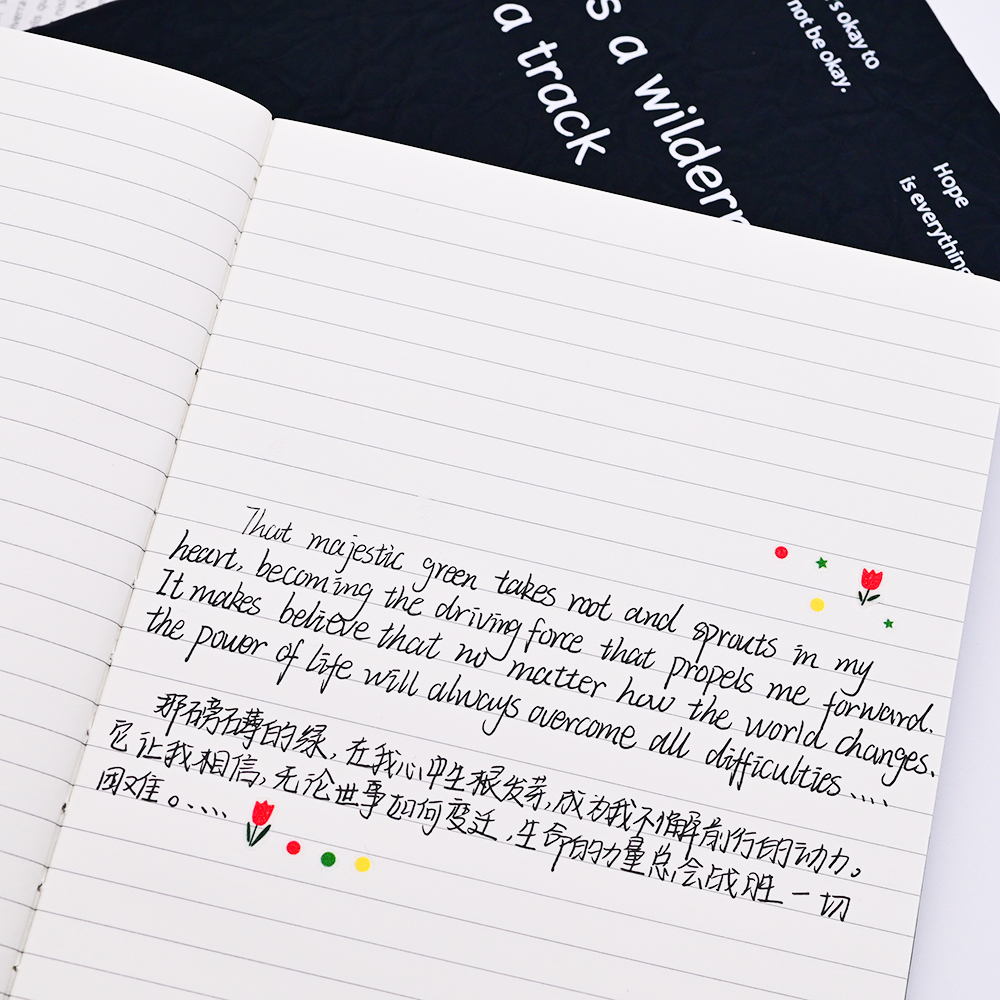 s a wildern
a track
's okay to
not be okay.
Hope
is everything
That majestic green takes root and sprouts in my
heart, becoming the driving force that propels me forward.
It makes believe that no matter how the world changes.
the power of life will always overcome all difficulties....
那磅礴的绿,在我心中生根发芽,成为我不懈前行的动力。
它让我相信,无论世事如何变迁,生命的力量总会战胜一切
困难。....